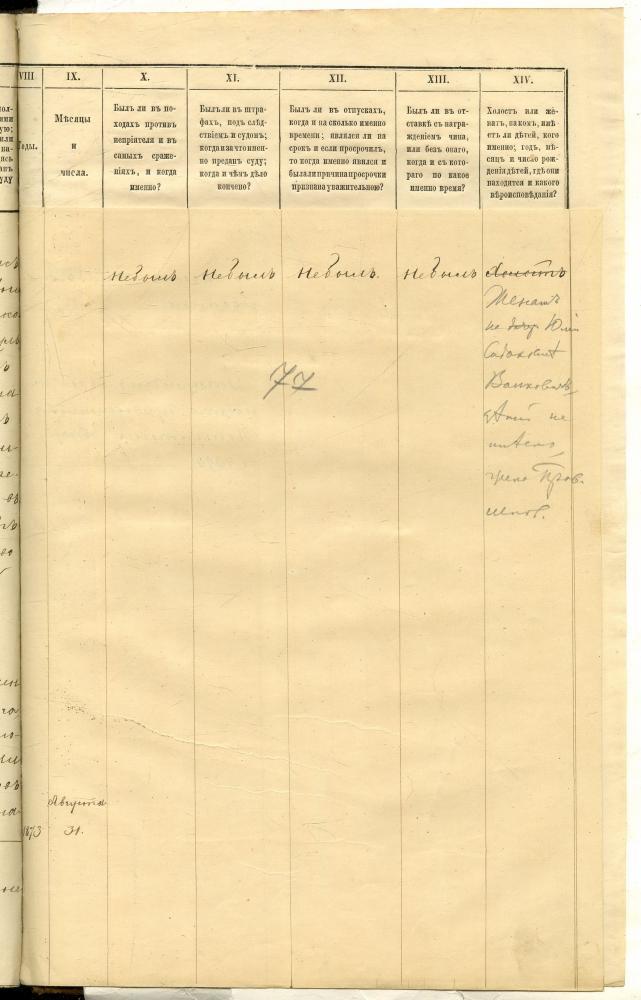 VIII
IX.
X.
XI.
XII.
XIII.
XIV.
Годы.
Мѣсяцы
и
числа.
Былъ ли въ по-
ходахъ противъ
непріятеля и въ
самыхъ сраже-
ніяхъ, и когда
именно?
Былъ ли въ штра-
фахъ, подъ слѣд-
ствіемъ и судомъ;
когда и за что имен-
но преданъ суду;
когда и чѣмъ дѣло
кончено?
Былъ ли въ отпускахъ,
когда и на сколько именно
времени; являлся ли на
срокъ и если просрочилъ,
то когда именно явился и
была ли причина просрочки
признана уважительною?
Былъ ли въ от-
ставкѣ съ награ-
жденіемъ чина,
или безъ онаго,
когда и съ кото-
раго по какое
именно время?
Холостъ или же-
натъ, на комъ, имѣ-
етъ ли дѣтей, кого
именно; годъ, мѣ-
сяцъ и число рож-
денія дѣтей, гдѣ они
находятся и какого
вѣроисповѣданія?
Небылъ
Небылъ
Небылъ.
Небылъ
Холостъ
Женатъ
на Юліи
дѣтей не
имѣетъ
77
Августа
1873
31.